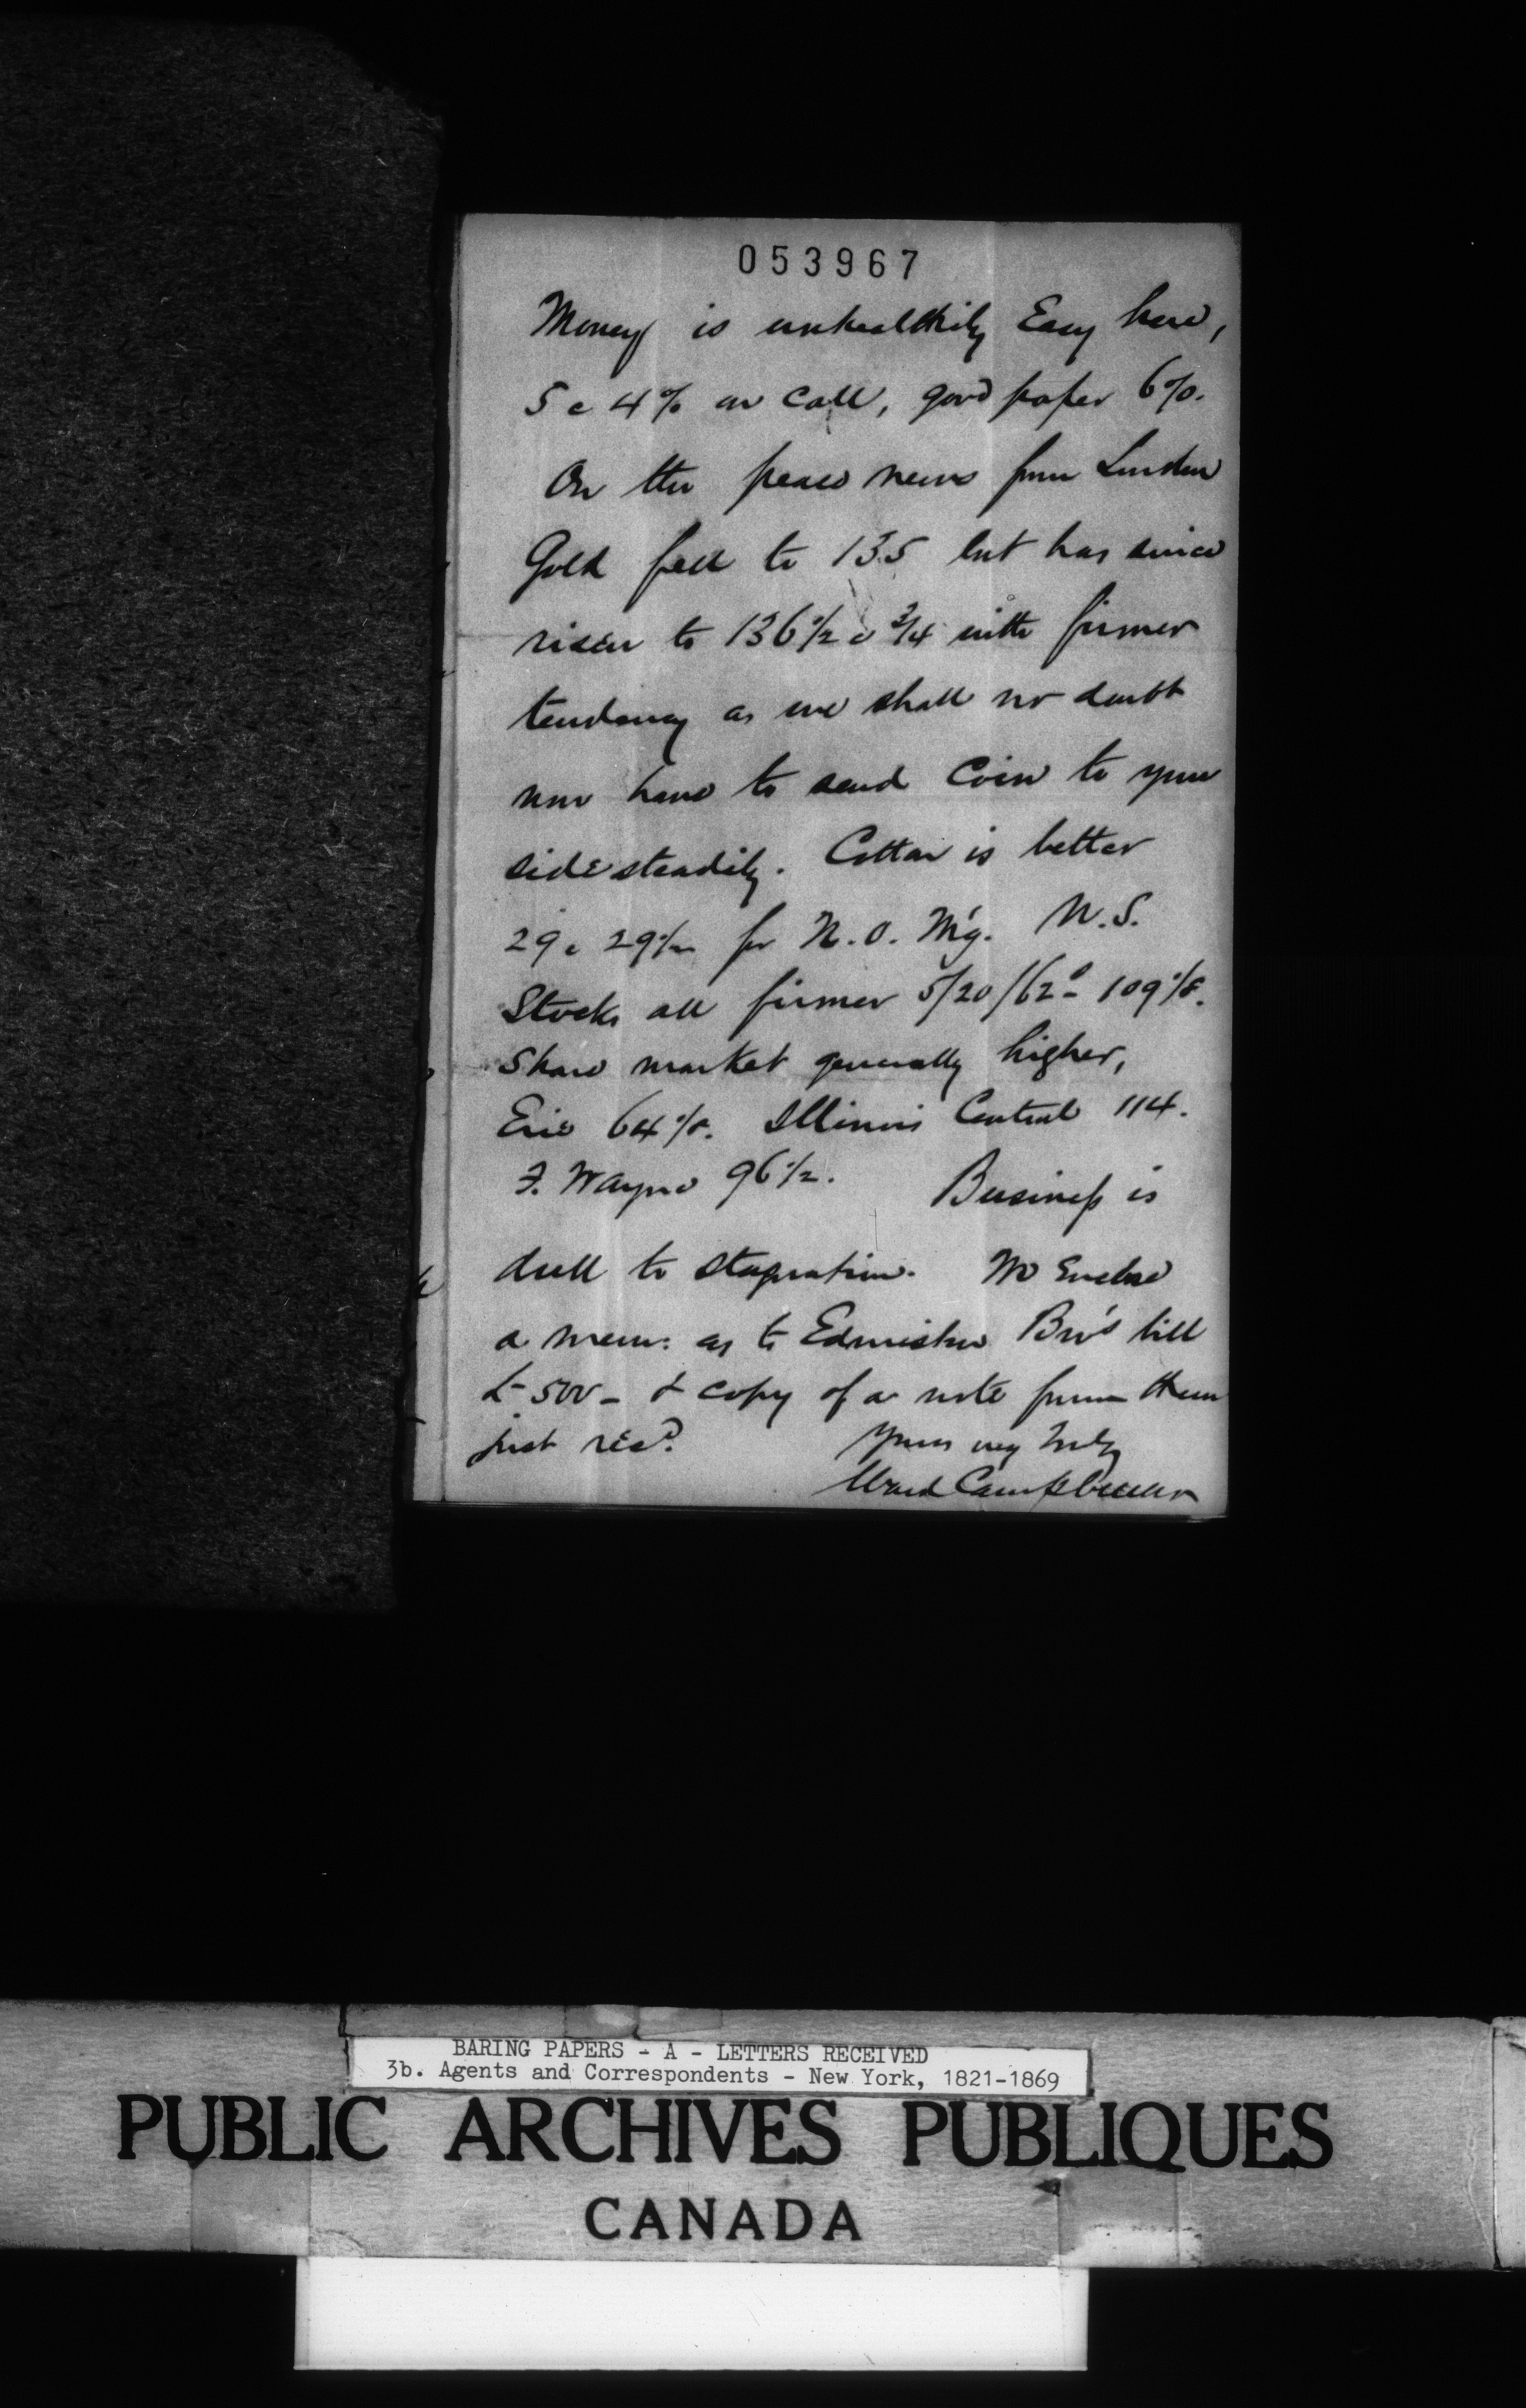 053967
Money is unhealthily Easy here,
5 a 4% on Call, good paper 6%.
On the peace news from London
Gold fell to 135 but has since
risen to 136½ a ¾ with firmer
tendency as we shall no doubt
now have to send Coin to your
side steadily. Cotton is better
29 a 29½ for N.O. Mg. U.S.
Stocks all firmer 5/20/62s 109⅛.
Share market generally higher,
Erie 64⅛. Illinois Central 114.
F. Wayne 96½. Business is
dull to stagnation. We Enclose
a mem: as to Edmiston Bros bill
£500 - & copy of a note from them
just recd.
Yours very truly
Ward Campbell &
BARING PAPERS - A - LETTERS RECEIVED
3b. Agents and Correspondents - New York, 1821-1869
PUBLIC ARCHIVES PUBLIQUES
CANADA